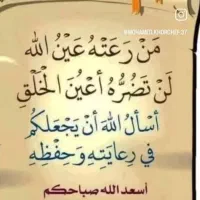 مَنْ رَعَتْهُ عَيْنُ الله
لَنْ تَضُرُّهُ أَعْيُنُ الْخَلْقِ
أَسْأَلُ اللهَ أَنْ يَجْعَلَكُم
فِي رِعَايَتِهِ وَحِفْظِهِ
أسعد الله صباحكم